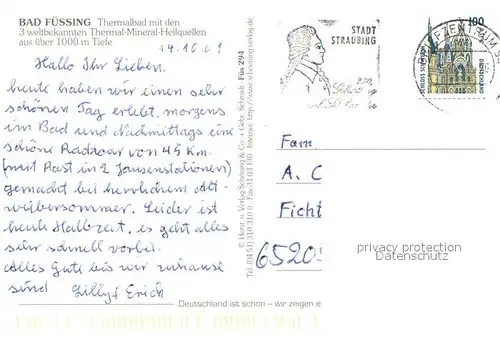 BAD FÜSSING Thermalbad mit den
3 weltbekannten Thermal-Mineral-Heilquellen
aus über 1000 m Tiefe
14.10.01
Hallo Ihr Lieben.
heute haben wir einen sehr
schönen Tag erlebt, morgens
im Bad und Nachmittags eine
schöne Radtour von 45 Km.
(mit Rast in 2 Jausenstationen)
gemacht bei herrlichem Alt-
weibersommer. Leider ist
heute Halbzeit, es geht alles
sehr schnell vorbei.
Alles Gute bis wir zuhause
sind Lilly + Erich
Deutschland ist schön – wir zeigen e
© Horst u. Verlag Schöning & Co. + Gebr. Schmidt Füs 294
Internet: http://www.schoening-verlag.de
STADT
STRAUBING
250.
BRIEFZENTRUM
100
DEUTSCHLAND
Fam.
A. C
Ficht
6520
privacy protection
Datenschutz